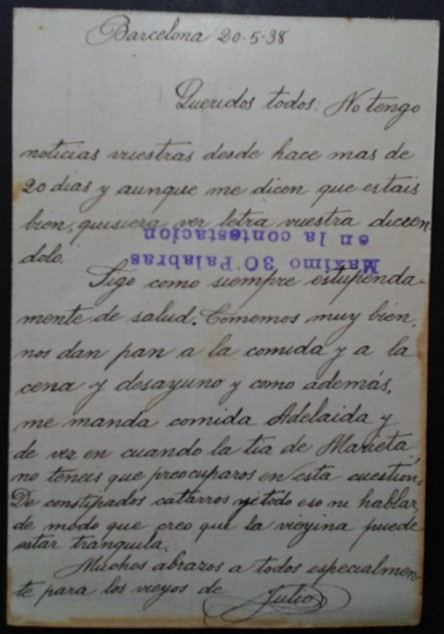 Barcelona 20-5-38
Queridos todos: No tengo
noticias vuestras desde hace mas de
20 dias y aunque me dicen que estais
bien, quisiera ver letra vuestra dicien
dolo.
Maximo 30 Palabras
en la contestacion
Sigo como siempre estupenda-
mente de salud. Comemos muy bien,
nos dan pan a la comida y a la
cena y desayuno y como además,
me manda comida Adelaida y
de vez en cuando la tia de Marieta,
no teneis que preocuparos en esta cuestion.
De constipados catarros ni todo eso ni hablar,
de modo que creo que la puede
estar tranquila.
Muchos abrazos a todos especialmen
te para los de Julio